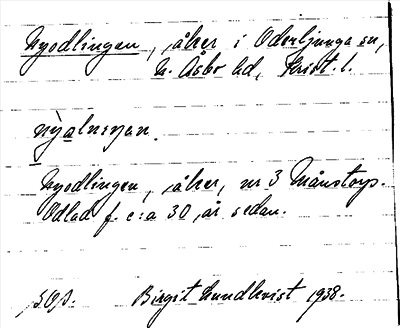 Nyodlingen, åker i Oderljunga sn,
N. Åsbo hd, Krist. l.
nỳalnejan.
Nyodlingen, åker, nr 3 Månstorp.
Odlad f. c:a 30 år sedan.
Birgit Lundkvist 1938.